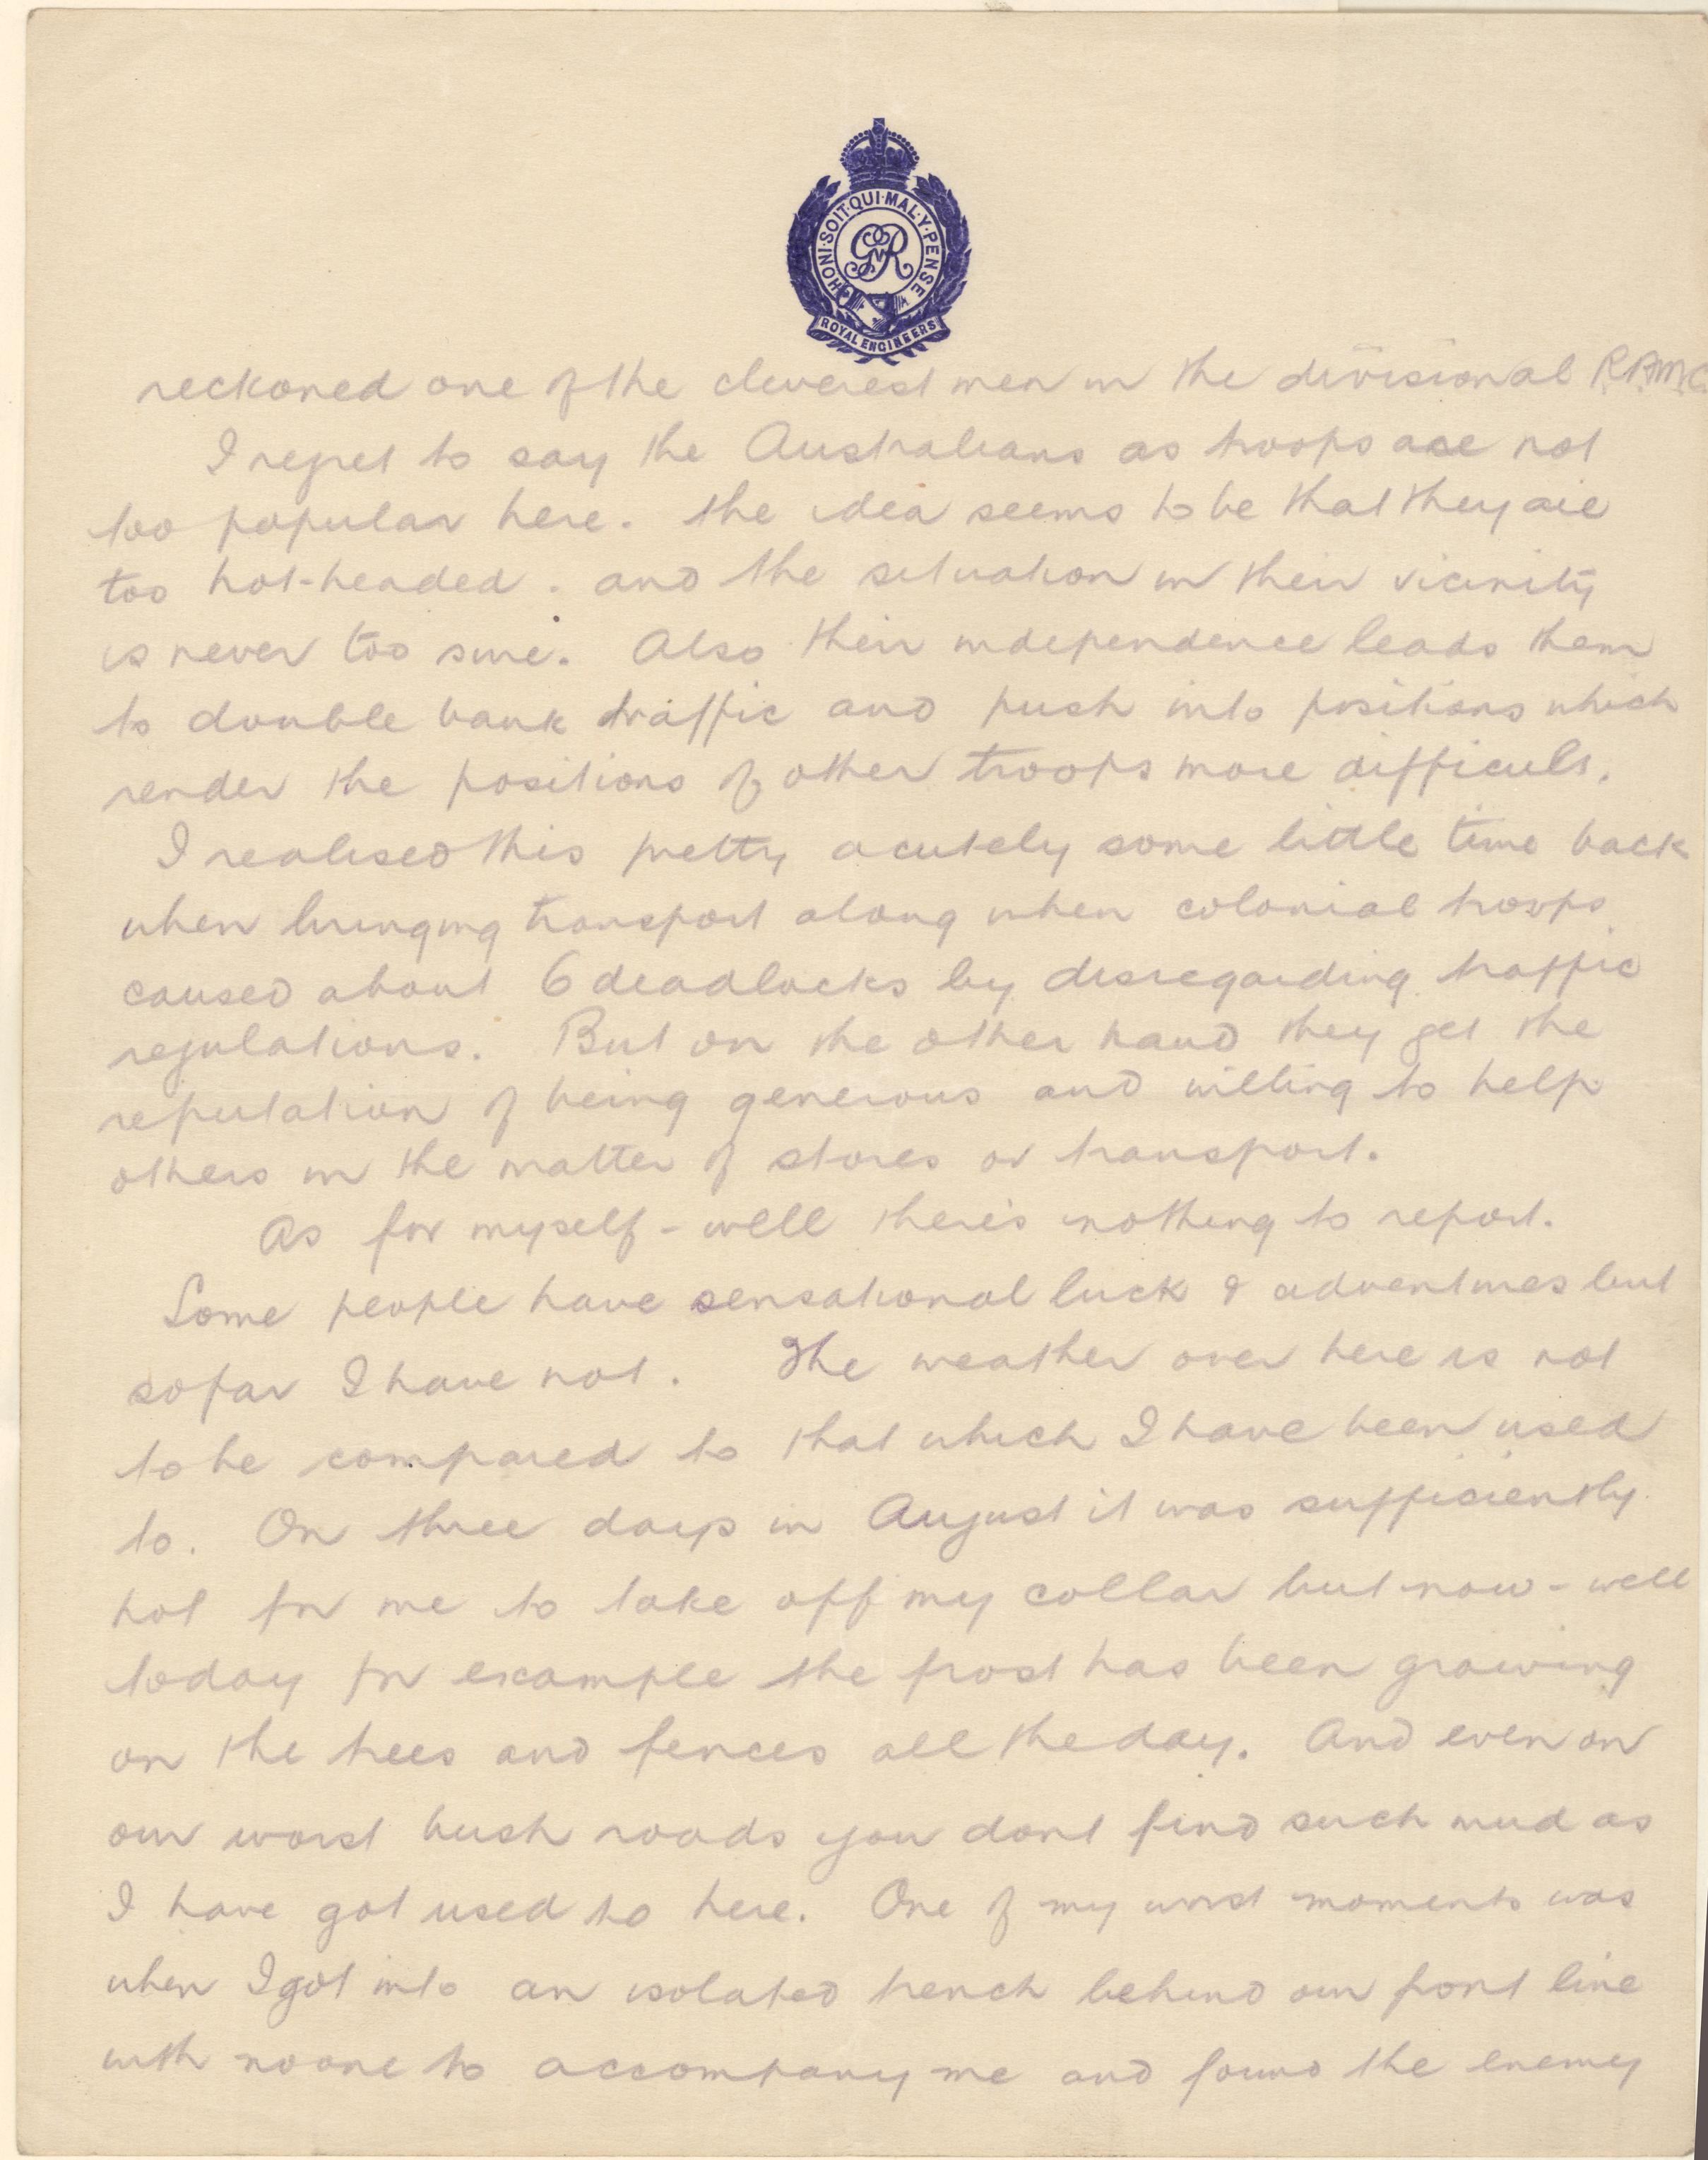 HONI·SOIT·QUI·MAL·Y·PENSE
GR
ROYAL ENGINEERS
reckoned one of the cleverest men in the divisional R.A.M.C.
I regret to say the Australians as troops are not
too popular here. the idea seems to be that they are
too hot-headed. and the situation in their vicinity
is never too sure. Also their independence leads them
to double bank traffic and push into positions which
render the positions of other troops more difficult.
I realised this pretty acutely some little time back
when bringing transport along when colonial troops
caused about 6 deadlocks by disregarding traffic
regulations. But on the other hand they get the
reputation of being generous and willing to help
others in the matter of stores or transport.
As for myself - well there's nothing to report.
Some people have sensational luck & adventures but
so far I have not. The weather over here is not
to be compared to that which I have been used
to. On three days in August it was sufficiently
hot for me to take off my collar but now - well
today for example the frost has been growing
on the trees and fences all the day. And even on
our worst bush roads you dont find such mud as
I have got used to here. One of my worst moments was
when I got into an isolated trench behind our front line
with no one to accompany me and found the enemy